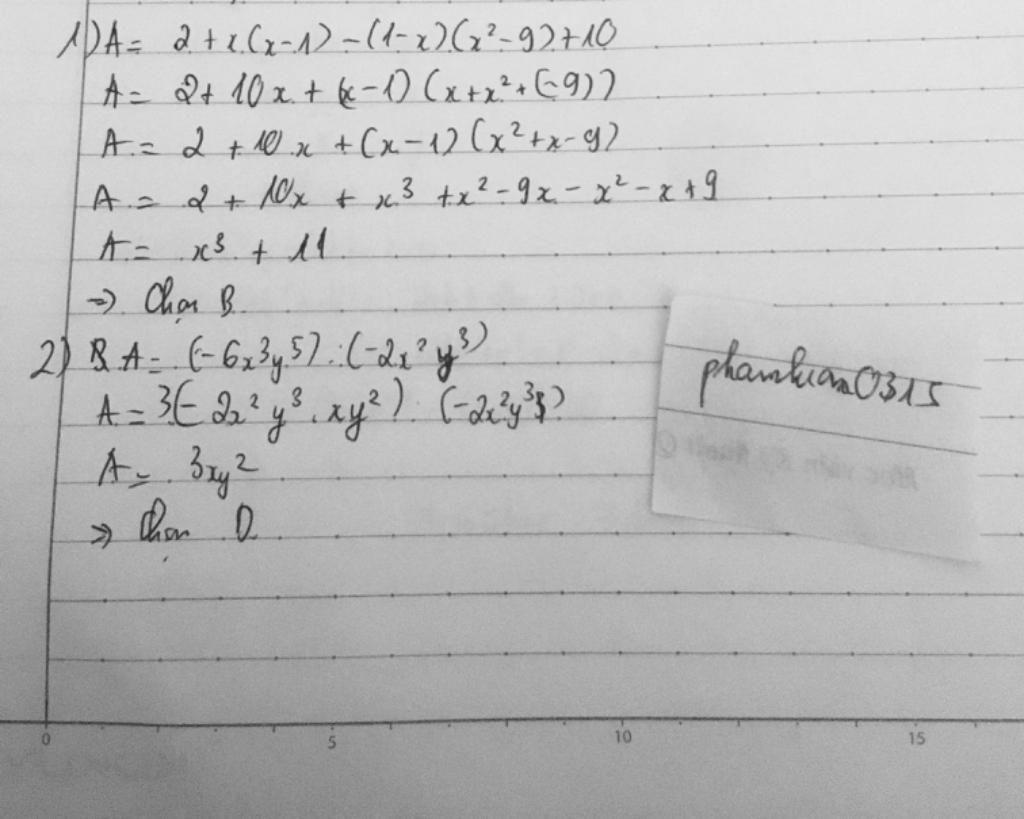 1) A = 2 + x(x-1) - (1-x)(x² - 9) + 10
A = 2 + 10x + (x-1)(x + x² + (-9))
A = 2 + 10x + (x-1)(x² + x - 9)
A = 2 + 10x + x³ + x² - 9x - x² - x + 9
A = x³ + 11
=> Chọn B
2) A = (-6x³y⁵) : (-2x²y³)
A = 3(-2x²y³ . xy²) : (-2x²y³)
A = 3xy²
=> Chọn D
0 5 10 15